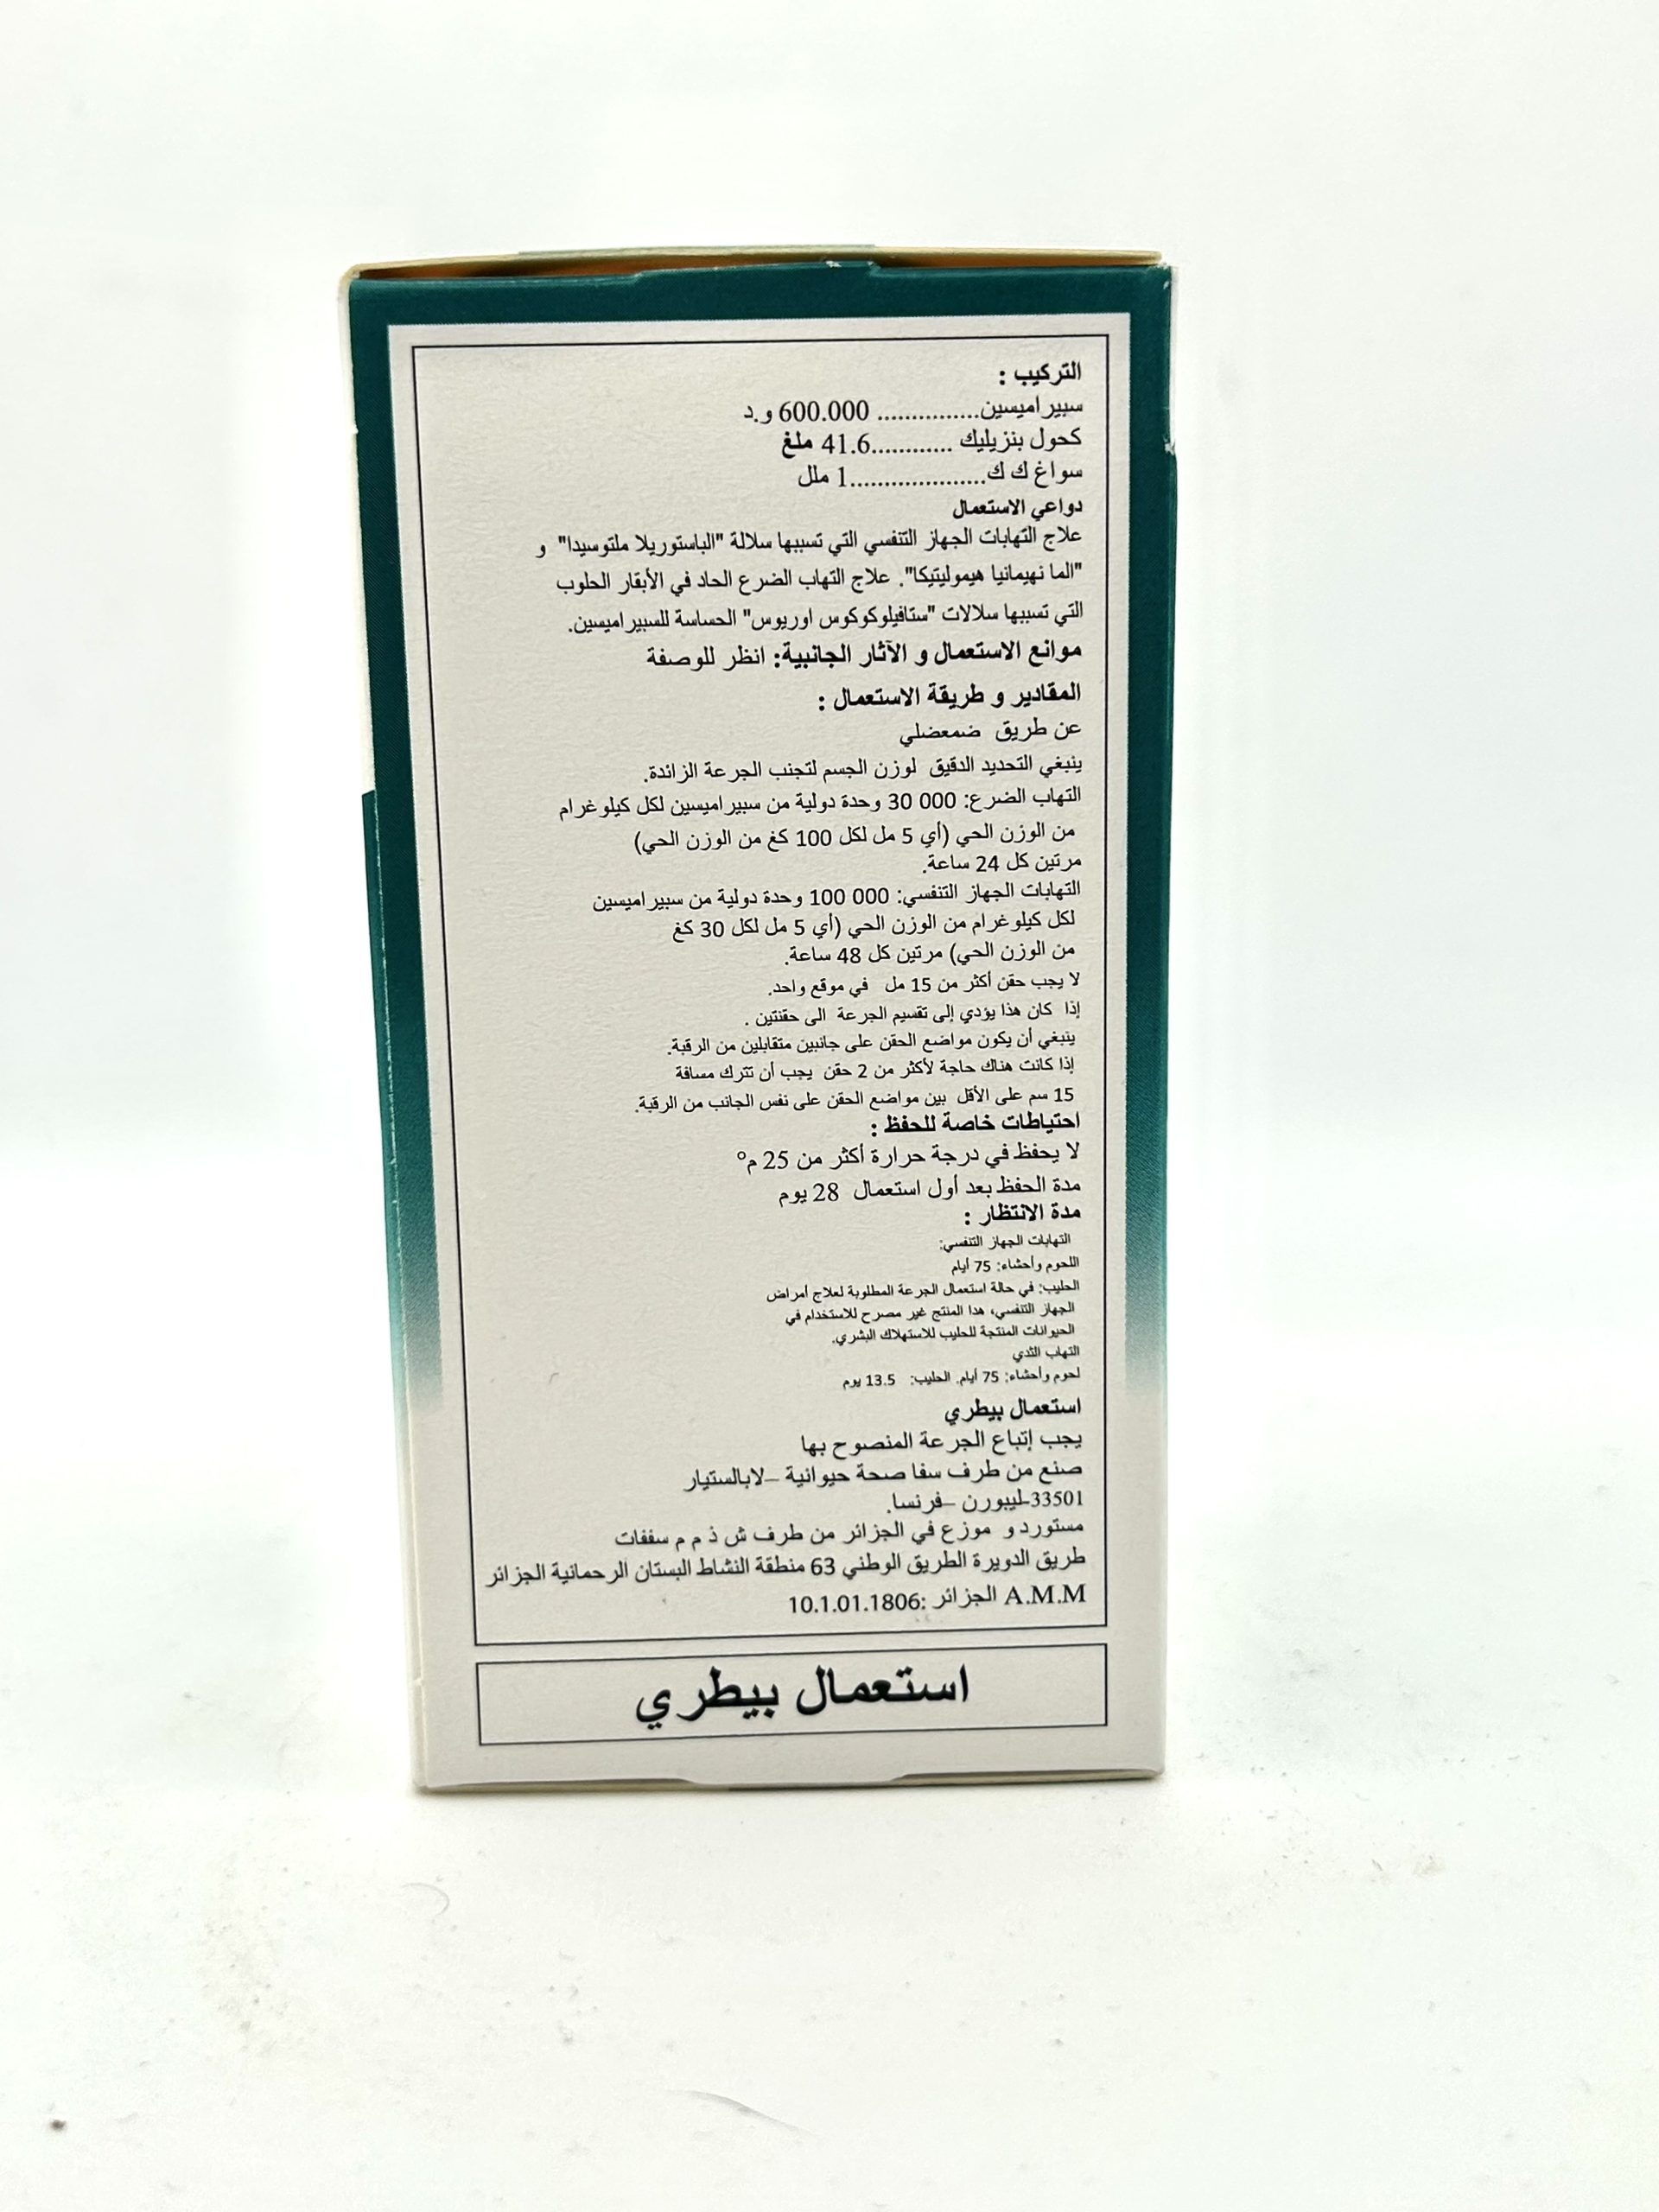 التركيب :
سبيراميسين............... 600.000 و.د
كحول بنزيليك ............41.6 ملغ
سواغ ك ك....................1 ملل
دواعي الاستعمال
علاج التهابات الجهاز التنفسي التي تسببها سلالة "الباستوريلا ملتوسيدا" و
"الما نهيمانيا هيموليتيكا". علاج التهاب الضرع الحاد في الأبقار الحلوب
التي تسببها سلالات "ستافيلوكوكوس اوريوس" الحساسة للسبيراميسين.
موانع الاستعمال و الآثار الجانبية: انظر للوصفة
المقادير و طريقة الاستعمال :
عن طريق ضمعضلي
ينبغي التحديد الدقيق لوزن الجسم لتجنب الجرعة الزائدة.
التهاب الضرع: 000 30 وحدة دولية من سبيراميسين لكل كيلوغرام
من الوزن الحي (أي 5 مل لكل 100 كغ من الوزن الحي)
مرتين كل 24 ساعة.
التهابات الجهاز التنفسي: 000 100 وحدة دولية من سبيراميسين
لكل كيلوغرام من الوزن الحي (أي 5 مل لكل 30 كغ
من الوزن الحي) مرتين كل 48 ساعة.
لا يجب حقن أكثر من 15 مل في موقع واحد.
إذا كان هذا يؤدي إلى تقسيم الجرعة الى حقنتين .
ينبغي أن يكون مواضع الحقن على جانبين متقابلين من الرقبة.
إذا كانت هناك حاجة لأكثر من 2 حقن يجب أن تترك مسافة
15 سم على الأقل بين مواضع الحقن على نفس الجانب من الرقبة.
احتياطات خاصة للحفظ :
لا يحفظ في درجة حرارة أكثر من 25 م°
مدة الحفظ بعد أول استعمال 28 يوم
مدة الانتظار :
التهابات الجهاز التنفسي:
اللحوم وأحشاء: 75 أيام
الحليب: في حالة استعمال الجرعة المطلوبة لعلاج أمراض
الجهاز التنفسي، هدا المنتج غير مصرح للاستخدام في
الحيوانات المنتجة للحليب للاستهلاك البشري.
التهاب الثدي
لحوم وأحشاء: 75 أيام. الحليب: 13.5 يوم
استعمال بيطري
يجب إتباع الجرعة المنصوح بها
صنع من طرف سفا صحة حيوانية –لابالستيار
33501-ليبورن –فرنسا.
مستورد و موزع في الجزائر من طرف ش ذ م م سففات
طريق الدويرة الطريق الوطني 63 منطقة النشاط البستان الرحمانية الجزائر
A.M.M الجزائر :10.1.01.1806
استعمال بيطري